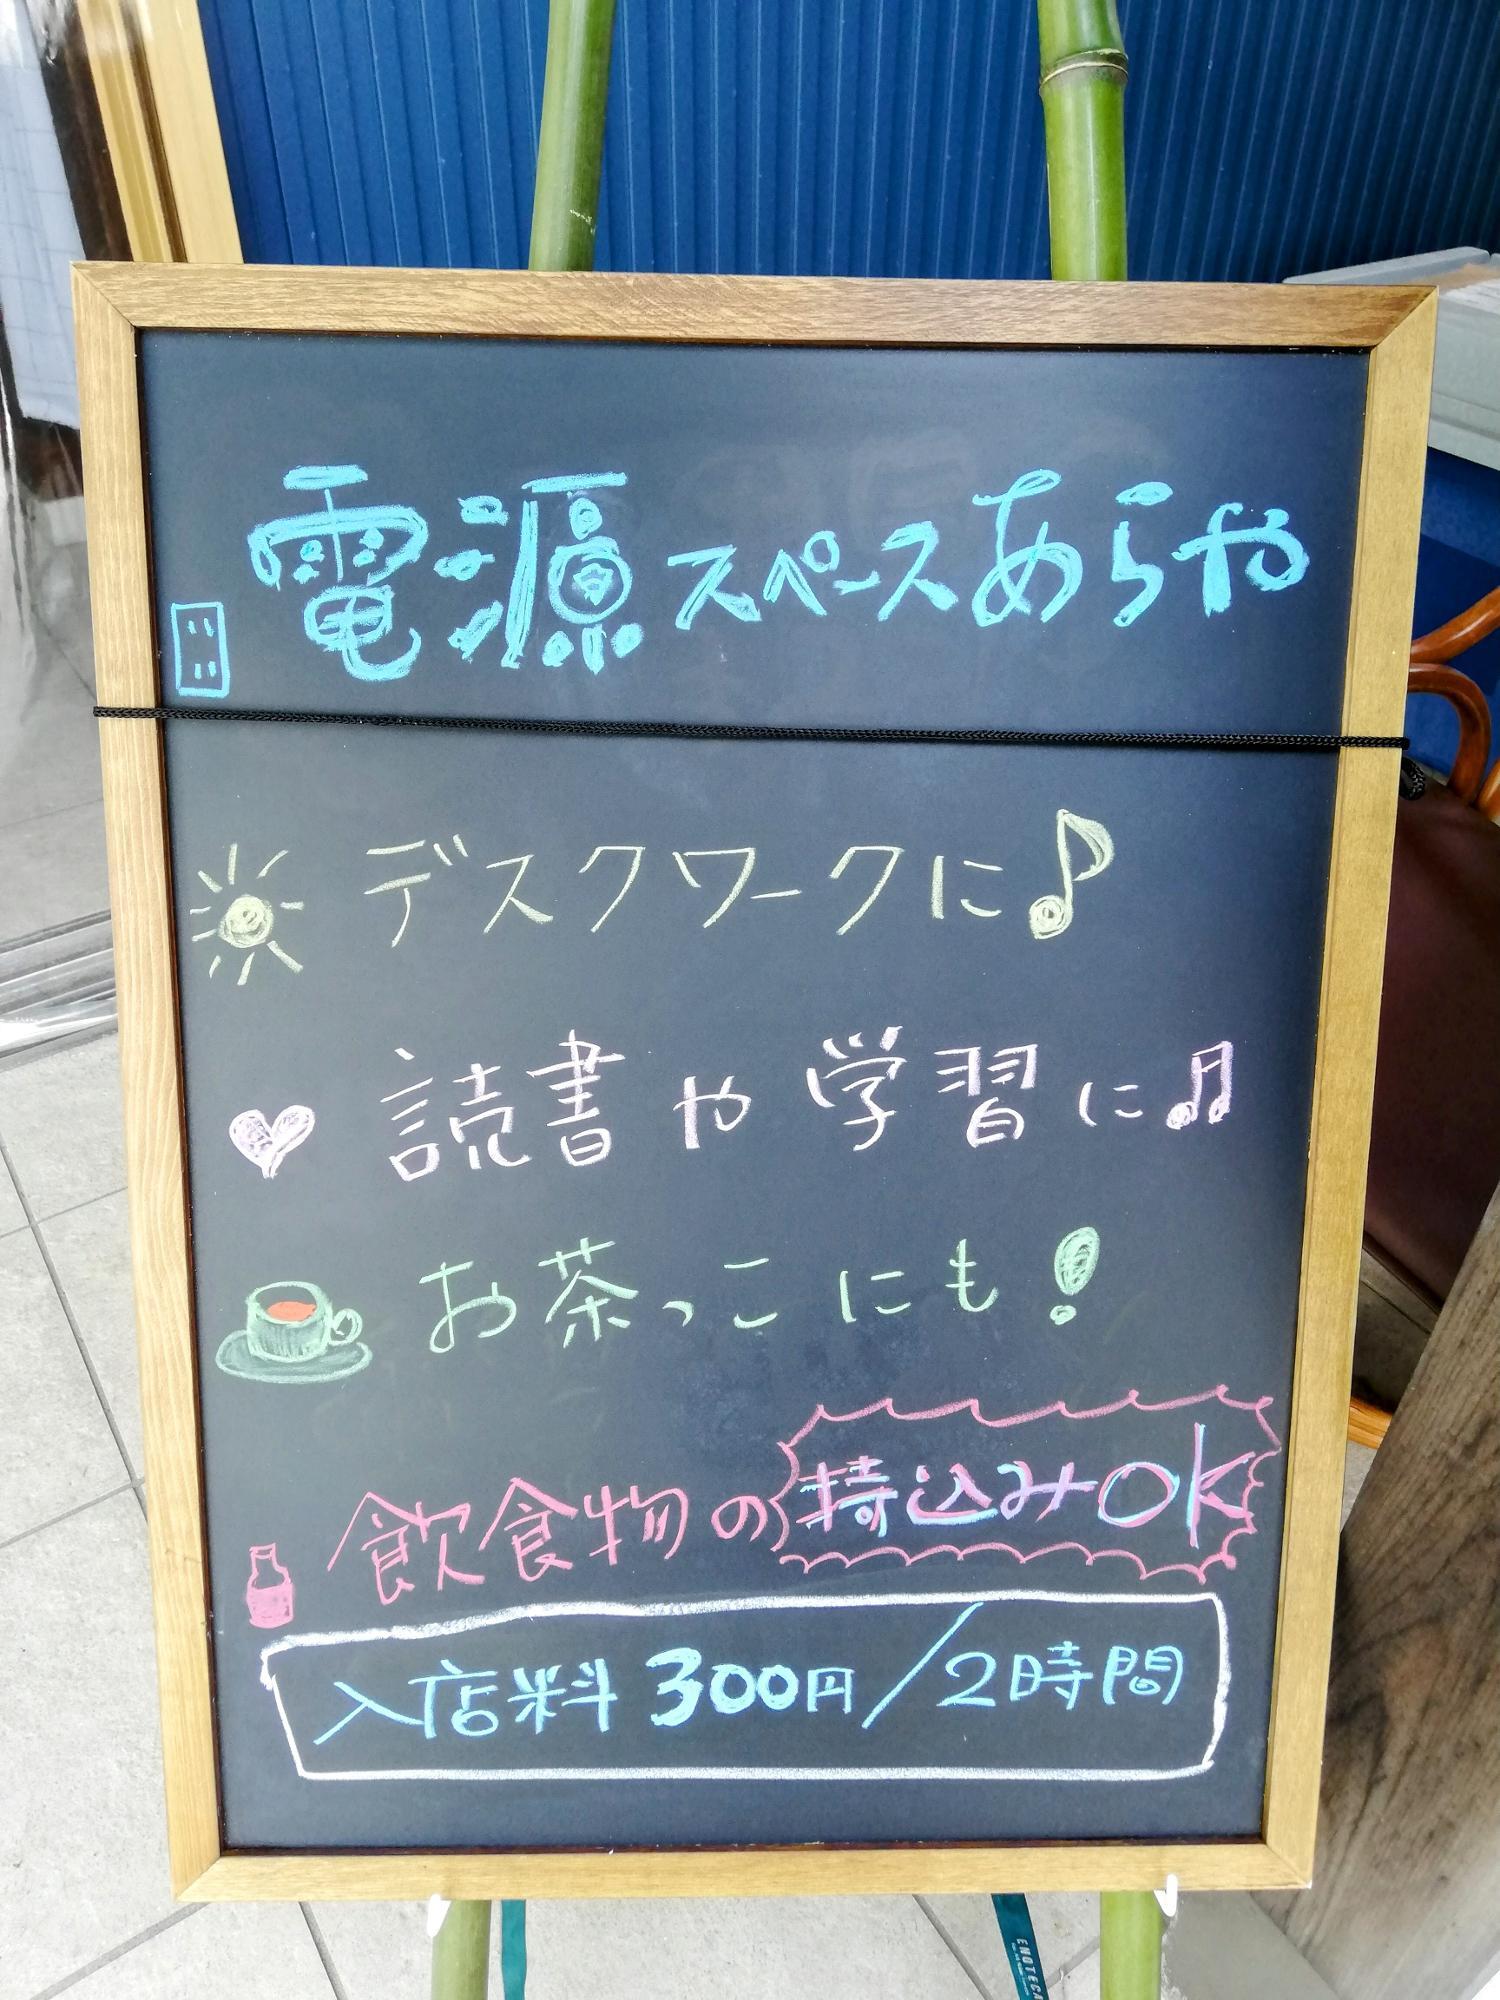 電源スペースあらや
デスクワークに♪
読書や学習に♫
お茶っこにも!
飲食物の持込みOK
入店料 300円/2時間
ENOTECA